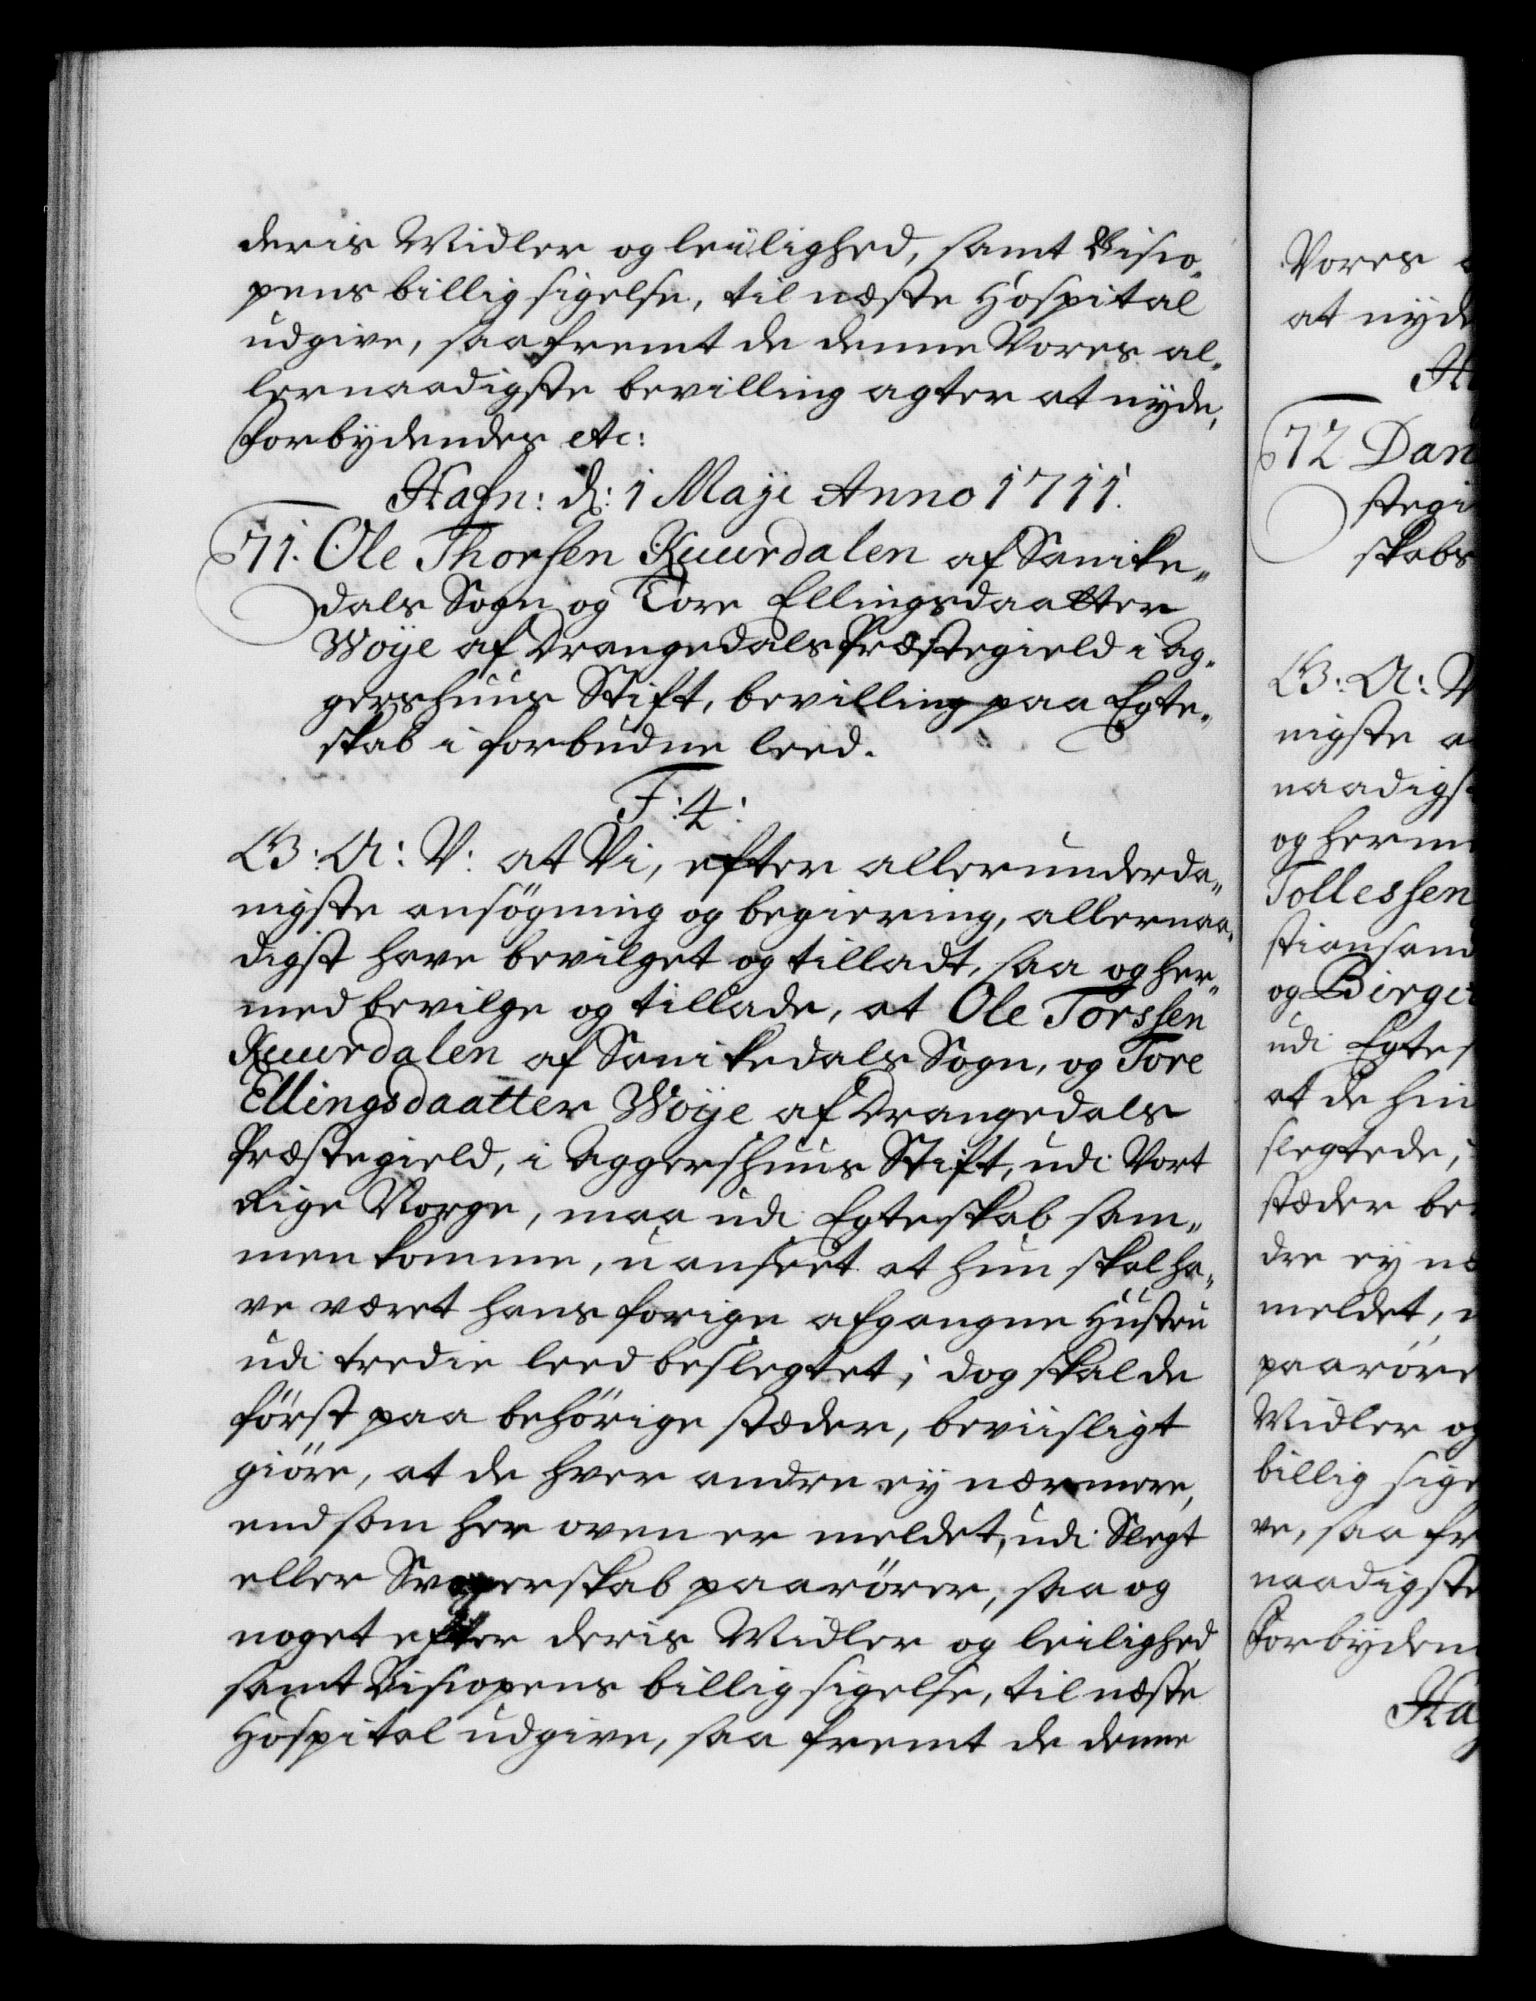 deris Midler og leilighed, samt Bisio„
pens billig sigelse, til næste Hospital
udgive, saafremt de denne Vores al„
lernaadigste bevilling agter at nyde,
Forbydendes etc:
Hafn: d: 1 Maji Anno 1711.
71. Ole Thorsen Kuurdalen af Sanike„
dals Sogn og Tore Ellingsdaatter
Woye af Drangedals Præstegield i Ag„
gershuus Stift, bevilling paa Egte„
skab i forbudne leed.
F: 4:
G: A: V: at Vi, efter allerunderda„
nigste ansøgning og begiering, allernaa„
digst have bevilget og tilladt, saa og her„
med bevilge og tillade, at Ole Torssen
Kuurdalen af Sanikedals Sogn, og Tore
Ellingsdaatter Woye af Drangedals
Præstegield, i Aggershuus Stift, udi Vort
Rige Norge, maa udi Egteskab sam„
men komme, uanseet at hun skal ha„
ve været hans forige afgangne Hustru
udi tredie leed beslegtet; dog skal de
først paa behörige stæder, beviisligt
giöre, at de hver andre ey nærmere,
end som her oven er meldet, udi Slegt
eller Svogerskab paarörer, saa og
noget efter deris Midler og leilighed
samt Bisiopens billig sigelse, til næste
Hospital udgive, saa fremt de denne
Vores
at nyde
72 Dan
stegi
skabs
G: A: V
nigste a
naadigs
og herm
Tollessen
stiansand
og Birge
udi Egtes
at de hin
slegtede,
stæder be
dre ey næ
meldet,
paaröre
Midler og
billig sige
ve, saa fr
naadigste
Forbyden
Ha